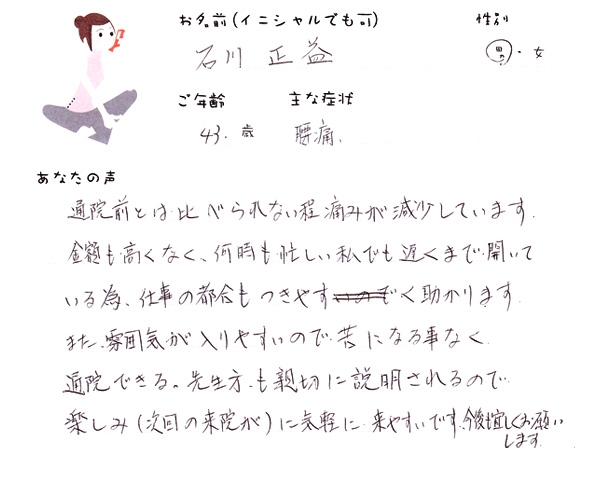 お名前(イニシャルでも可) 性別
石川 正益 男・女
ご年齢 主な症状
43. 歳 腰痛.
あなたの声
通院前とは比べられない程痛みが減少しています.
金額も高くなく、何時も忙しい私でも遅くまで開いて
いる為、仕事の都合もつきやすく助かります.
また、雰囲気が入りやすいので苦になる事なく
通院できる。先生方も親切に説明されるので
楽しみ(次回の来院が)に気軽に来やすいです.今後も宜しくお願い
します.